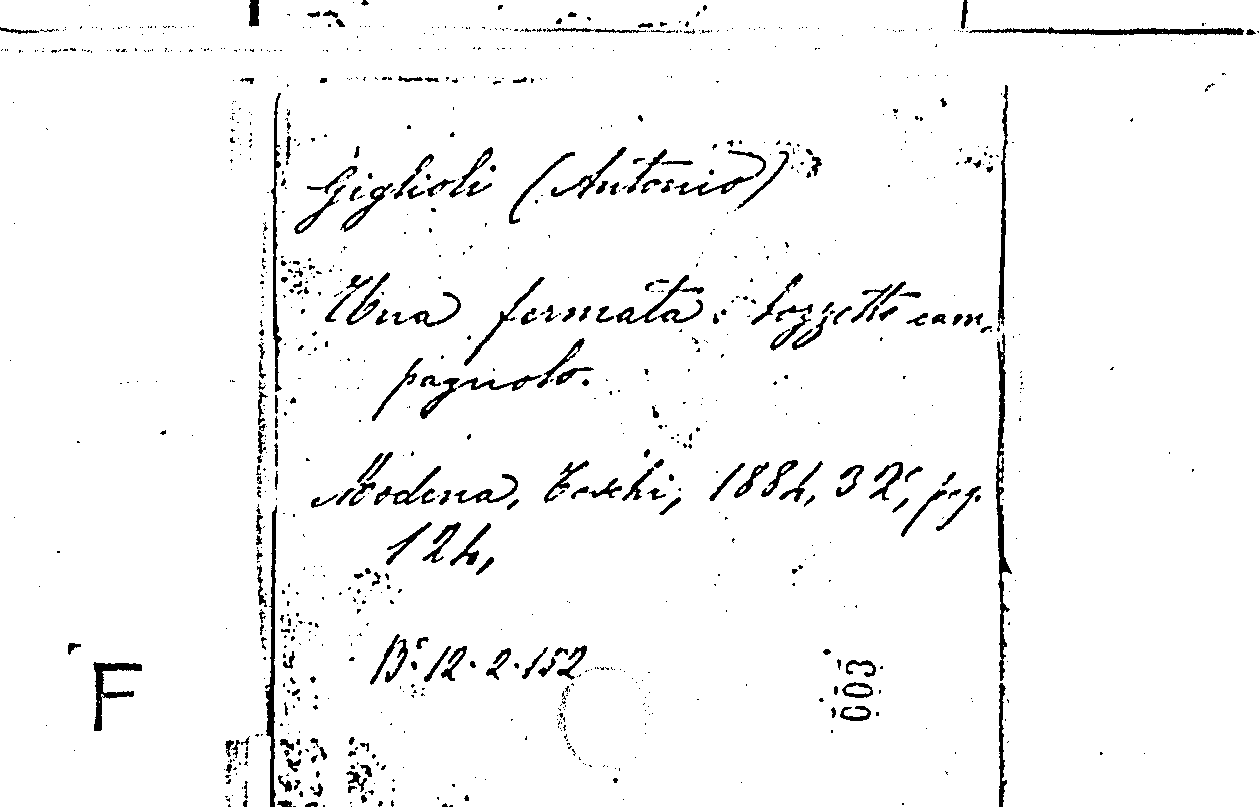 Giglioli (Antonio)
Una fermata: bozzetto cam-
pagnolo.
Modena, Toschi, 1884, 32°, pag.
124,
B.° 12. 2. 152
F
003